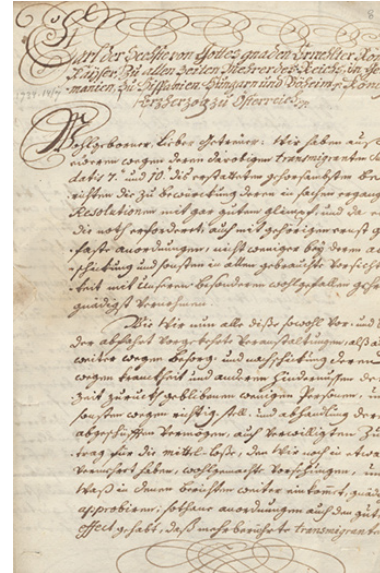 8
Carl der Sechste von Gottes gnaden Erwehlter Röm
Kayser, zu allen Zeiten Mehrer des Reichs, in Ger
manien, zu Hispanien, Hungarn und Böheim König
Ertzherzog zu Österreich
Wohlgeborner, Lieber Getreuer: Wir haben auß
anderen wegen deren dortigen transmigranten
datis 7. und 10. dis erstatteten gehorsambsten Be
richten die zu bewürckung deren in sachen ergang
Resolutionen mit gar gutem glimpf, und da
die noth erfordert, auch mit gehörigen ernst
faste anordnungen, nicht weniger bey deren
und sonsten in allem gebrauchte Vorsich
tigkeit mit Unseren besonderen wohlgefallen
gnädigst Vernohmen.
Wie Wir nun alle diße sowohl Vor- und
der abfahrt Vorgekehrte Veranstaltungen, alß
weiter wegen besorg- und nachschickung deren
wegen kranckheit und anderen Hindernußen
zeit zuruck gebliebenen wenigen Persohnen,
sonsten wegen richtig-stell- und abhandlung der
Vermögen, auch Verwilligten Zu
trag für die mittel-loße, den Wir noch in etwas
Vermehret haben, wohlgemachte Vorsehungen,
Waß in denen Berichten weiter einkommt,
approbiren; sothane anordnungen auch den gut
effect gehabt, daß mehr berührte transmigrante